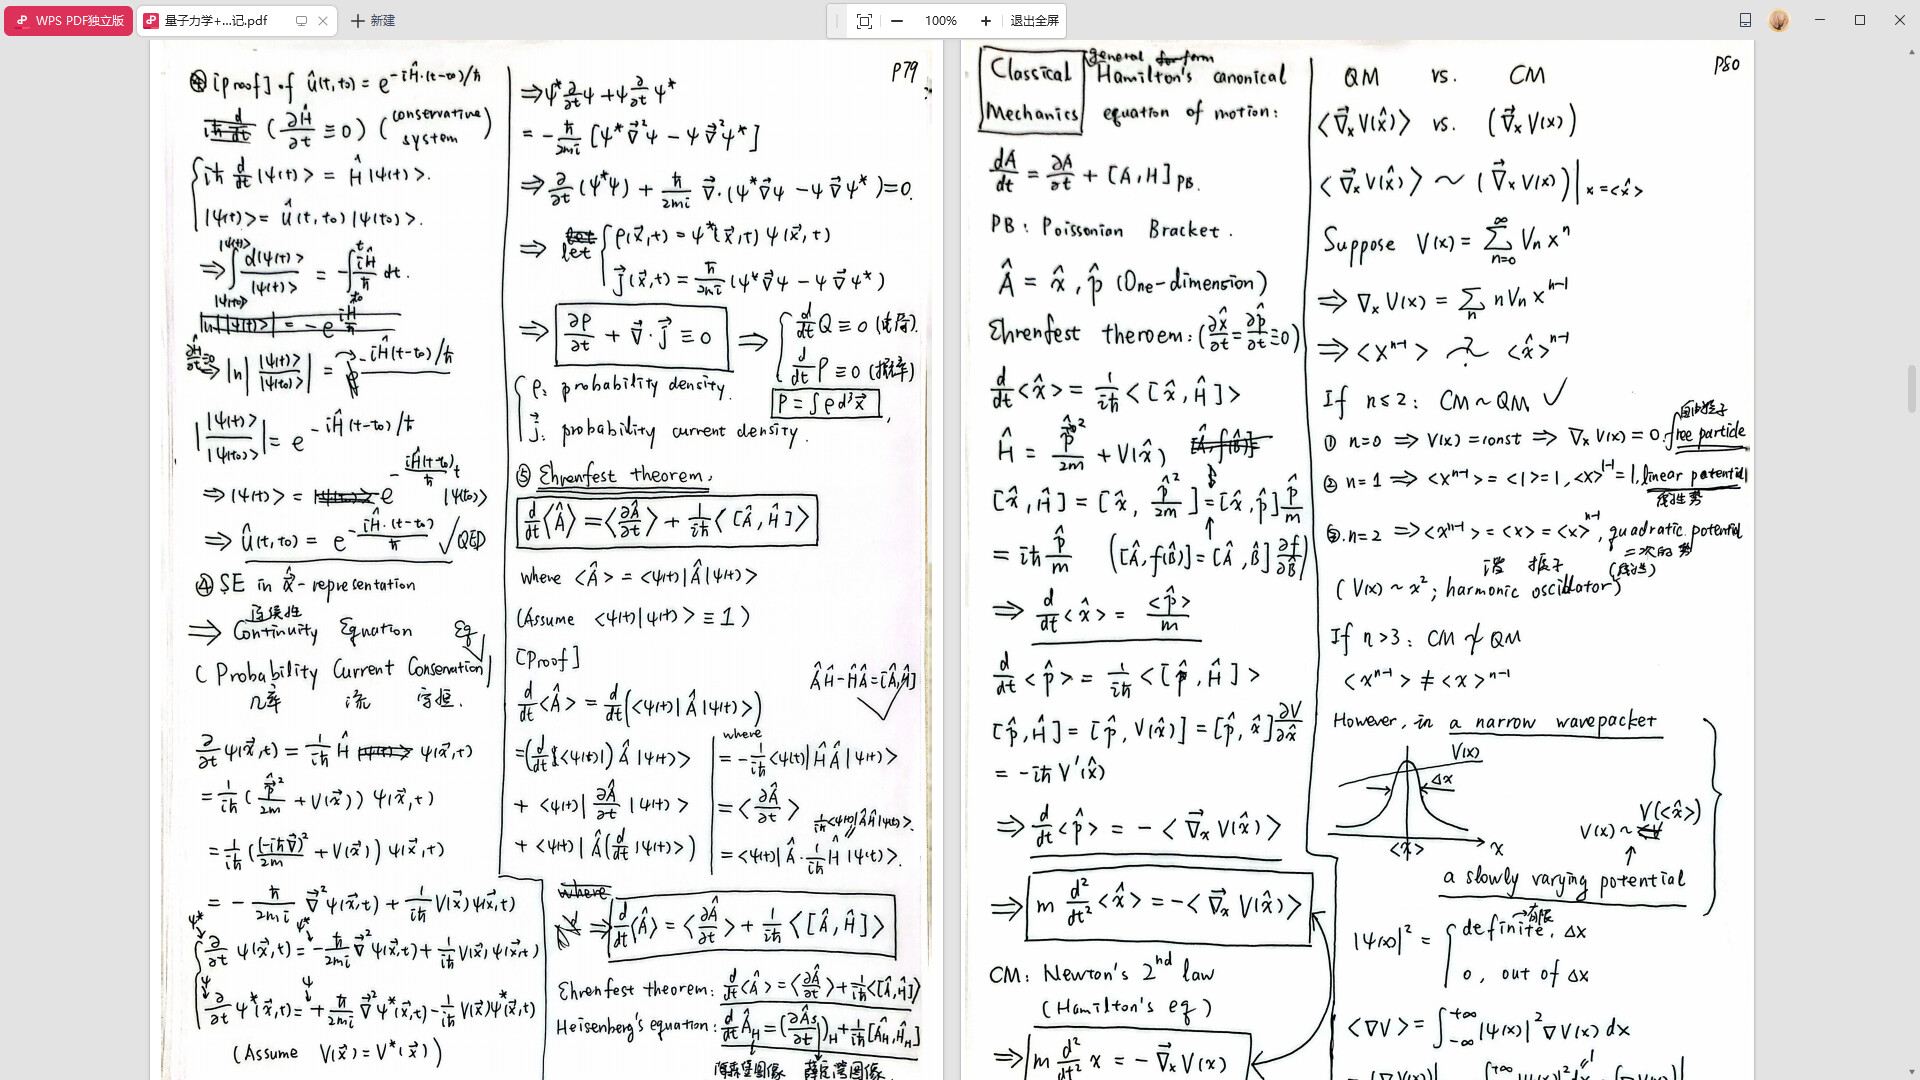 WPS PDF独立版
量子力学+...记.pdf
新建
100%
退出全屏
P79
④ [proof] of û(t,t₀) = e^{-iĤ·(t-t₀)/ħ}
(∂Ĥ/∂t ≡ 0) (conservative system)
{ iħ d/dt |ψ(t)> = Ĥ|ψ(t)>.
|ψ(t)> = û(t,t₀)|ψ(t₀)>.
⇒ ∫_{|ψ(t₀)>}^{|ψ(t)>} d|ψ(t)>/|ψ(t)> = -∫_{t₀}^{t} iĤ/ħ dt.
∂Ĥ/∂t≡0 ⇒ ln| |ψ(t)>/|ψ(t₀)> | = -iĤ(t-t₀)/ħ
| |ψ(t)>/|ψ(t₀)> | = e^{-iĤ(t-t₀)/ħ}
⇒ |ψ(t)> = e^{-iĤ(t-t₀)/ħ} |ψ(t₀)>
⇒ û(t,t₀) = e^{-iĤ·(t-t₀)/ħ} ✓QED
④ SE in x̂-representation
⇒ Continuity Equation Eq
(Probability Current Conservation)
几率 流 守恒.
∂/∂t ψ(x⃗,t) = 1/iħ Ĥ ψ(x⃗,t)
= 1/iħ (p̂²/2m + V(x⃗)) ψ(x⃗,t)
= 1/iħ ((-iħ∇⃗)²/2m + V(x⃗)) ψ(x⃗,t)
= -ħ/2mi ∇⃗²ψ(x⃗,t) + 1/iħ V(x⃗)ψ(x⃗,t)
ψ* ψ*
{ ∂/∂t ψ(x⃗,t) = -ħ/2mi ∇⃗²ψ(x⃗,t) + 1/iħ V(x⃗)ψ(x⃗,t)
ψ ψ
∂/∂t ψ*(x⃗,t) = +ħ/2mi ∇⃗²ψ*(x⃗,t) - 1/iħ V(x⃗)ψ*(x⃗,t)
(Assume V(x⃗) = V*(x⃗))
⇒ ψ* ∂/∂t ψ + ψ ∂/∂t ψ*
= -ħ/2mi [ψ*∇⃗²ψ - ψ∇⃗²ψ*]
⇒ ∂/∂t (ψ*ψ) + ħ/2mi ∇⃗·(ψ*∇⃗ψ - ψ∇⃗ψ*) = 0.
⇒ let { ρ(x⃗,t) = ψ*(x⃗,t) ψ(x⃗,t)
j⃗(x⃗,t) = ħ/2mi (ψ*∇⃗ψ - ψ∇⃗ψ*)
⇒ ∂ρ/∂t + ∇⃗·j⃗ ≡ 0 ⇒ { d/dt Q ≡ 0
d/dt P ≡ 0 (概率)
{ ρ: probability density. P = ∫ρd³x⃗
j⃗: probability current density.
⑤ Ehrenfest theorem.
d/dt <Â> = <∂Â/∂t> + 1/iħ <[Â,Ĥ]>
where <Â> = <ψ(t)|Â|ψ(t)>
(Assume <ψ(t)|ψ(t)> ≡ 1)
[Proof]
ÂĤ-ĤÂ=[Â,Ĥ]
d/dt <Â> = d/dt (<ψ(t)|Â|ψ(t)>)
= (d/dt <ψ(t)|) Â |ψ(t)>
+ <ψ(t)| ∂Â/∂t |ψ(t)>
+ <ψ(t)| Â (d/dt |ψ(t)>)
where
= -1/iħ <ψ(t)|ĤÂ|ψ(t)>
= <∂Â/∂t>
1/iħ <ψ(t)|ÂĤ|ψ(t)>.
= <ψ(t)|Â·1/iħ Ĥ|ψ(t)>.
⇒ d/dt <Â> = <∂Â/∂t> + 1/iħ <[Â,Ĥ]>
Ehrenfest theorem: d/dt <Â> = <∂Â/∂t> + 1/iħ <[Â,Ĥ]>
Heisenberg's equation: d/dt Â_H = (∂Â_S/∂t)_H + 1/iħ [Â_H,Ĥ_H]
海森堡图像 薛定谔图像.
P80
Classical Mechanics
general form
Hamilton's canonical
equation of motion:
dA/dt = ∂A/∂t + [A,H]_PB.
PB: Poissonian Bracket.
Â = x̂, p̂ (One-dimension)
Ehrenfest theroem: (∂x̂/∂t = ∂p̂/∂t ≡ 0)
d/dt <x̂> = 1/iħ <[x̂,Ĥ]>
Ĥ = p̂²/2m + V(x̂)
[x̂,Ĥ] = [x̂, p̂²/2m] = [x̂,p̂] p̂/m
= iħ p̂/m ([Â,f(B̂)] = [Â,B̂] ∂f/∂B̂)
⇒ d/dt <x̂> = <p̂>/m
d/dt <p̂> = 1/iħ <[p̂,Ĥ]>
[p̂,Ĥ] = [p̂,V(x̂)] = [p̂,x̂] ∂V/∂x̂
= -iħV'(x̂)
⇒ d/dt <p̂> = -<∇⃗ₓV(x̂)>
⇒ m d²/dt² <x̂> = -<∇⃗ₓV(x̂)>
CM: Newton's 2nd law
(Hamilton's eq)
⇒ m d²/dt² x = -∇⃗ₓV(x)
QM vs. CM
<∇⃗ₓV(x̂)> vs. (∇⃗ₓV(x))
<∇⃗ₓV(x̂)> ~ (∇⃗ₓV(x))|_{x=<x̂>}
Suppose V(x) = Σ_{n=0}^{∞} Vₙxⁿ
⇒ ∇ₓV(x) = Σₙ nVₙx^{n-1}
⇒ <x^{n-1}> ~? <x̂>^{n-1}
If n≤2: CM~QM ✓
自由粒子
① n=0 ⇒ V(x)=const ⇒ ∇ₓV(x)=0. free particle
② n=1 ⇒ <x^{n-1}> = <1> = 1, <x>^{1-1} = 1, linear potential
线性势
③ n=2 ⇒ <x^{n-1}> = <x> = <x>^{n-1}, quadratic potential
二次的势
谐 振子
(V(x)~x²; harmonic oscillator)
If n>3: CM ≁ QM
<x^{n-1}> ≠ <x>^{n-1}
However, in a narrow wavepacket
V(x)
Δx
<x>
x
V(x) ~ V(<x̂>)
a slowly varying potential
|ψ(x)|² = { definite, Δx
有限
0, out of Δx
<∇V> = ∫_{-∞}^{+∞} |ψ(x)|²∇V(x)dx